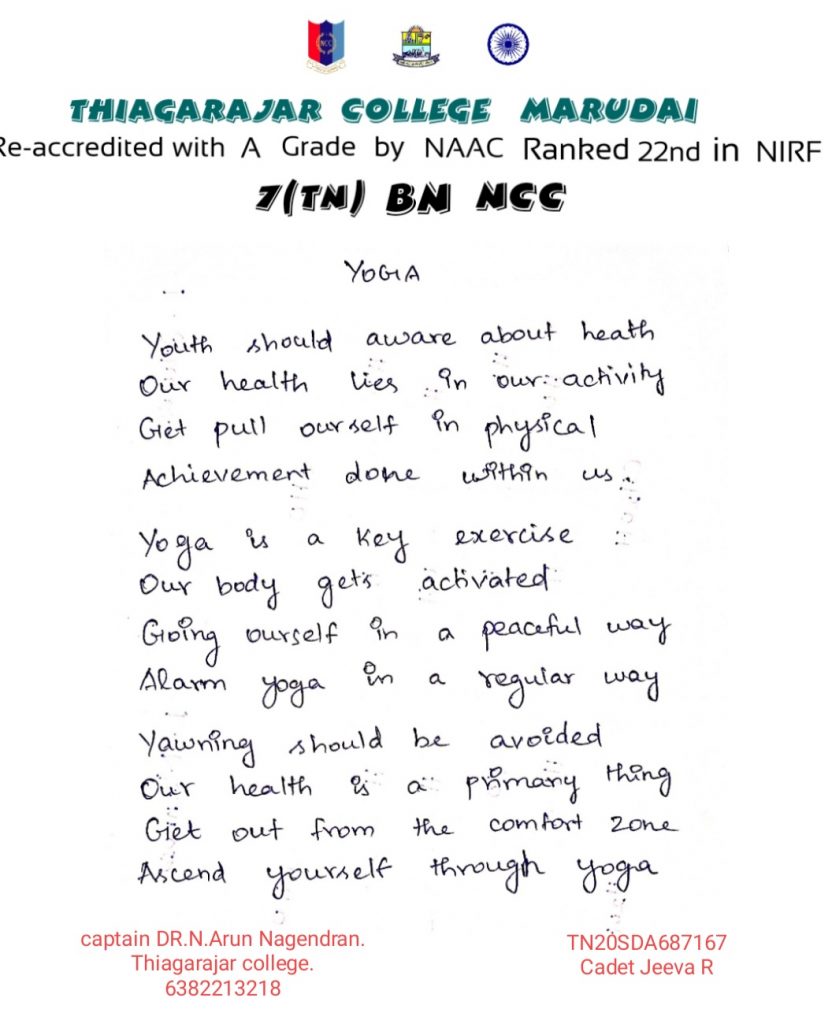 THIAGARAJAR COLLEGE MARUDAI
Re-accredited with A Grade by NAAC Ranked 22nd in NIRF
7(TN) BN NCC
YOGA
Youth should aware about heath
Our health lies in our activity
Get pull ourself in physical
Achievement done within us.
Yoga is a key exercise
Our body gets activated
Going ourself in a peaceful way
Alarm yoga in a regular way
Yawning should be avoided
Our health is a primary thing
Get out from the comfort zone
Ascend yourself through yoga
captain DR.N.Arun Nagendran.
Thiagarajar college.
6382213218
TN20SDA687167
Cadet Jeeva R